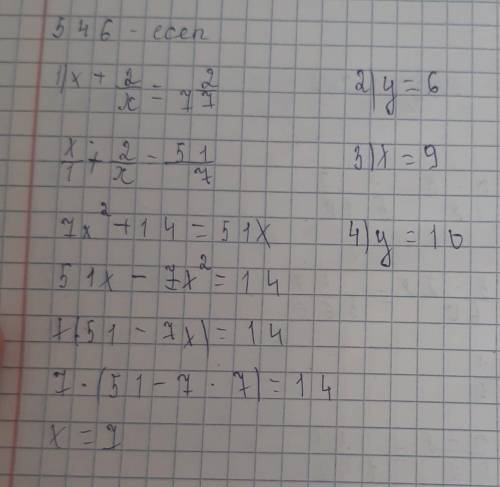 546 - есеп
1) x + 2/x = 7 2/7
2) y = 6
x/1 + 2/x = 51/7
3) x = 9
7x² + 14 = 51x
4) y = 10
51x - 7x² = 14
7(51 - 7x) = 14
7 · (51 - 7 · 7) = 14
x = 7